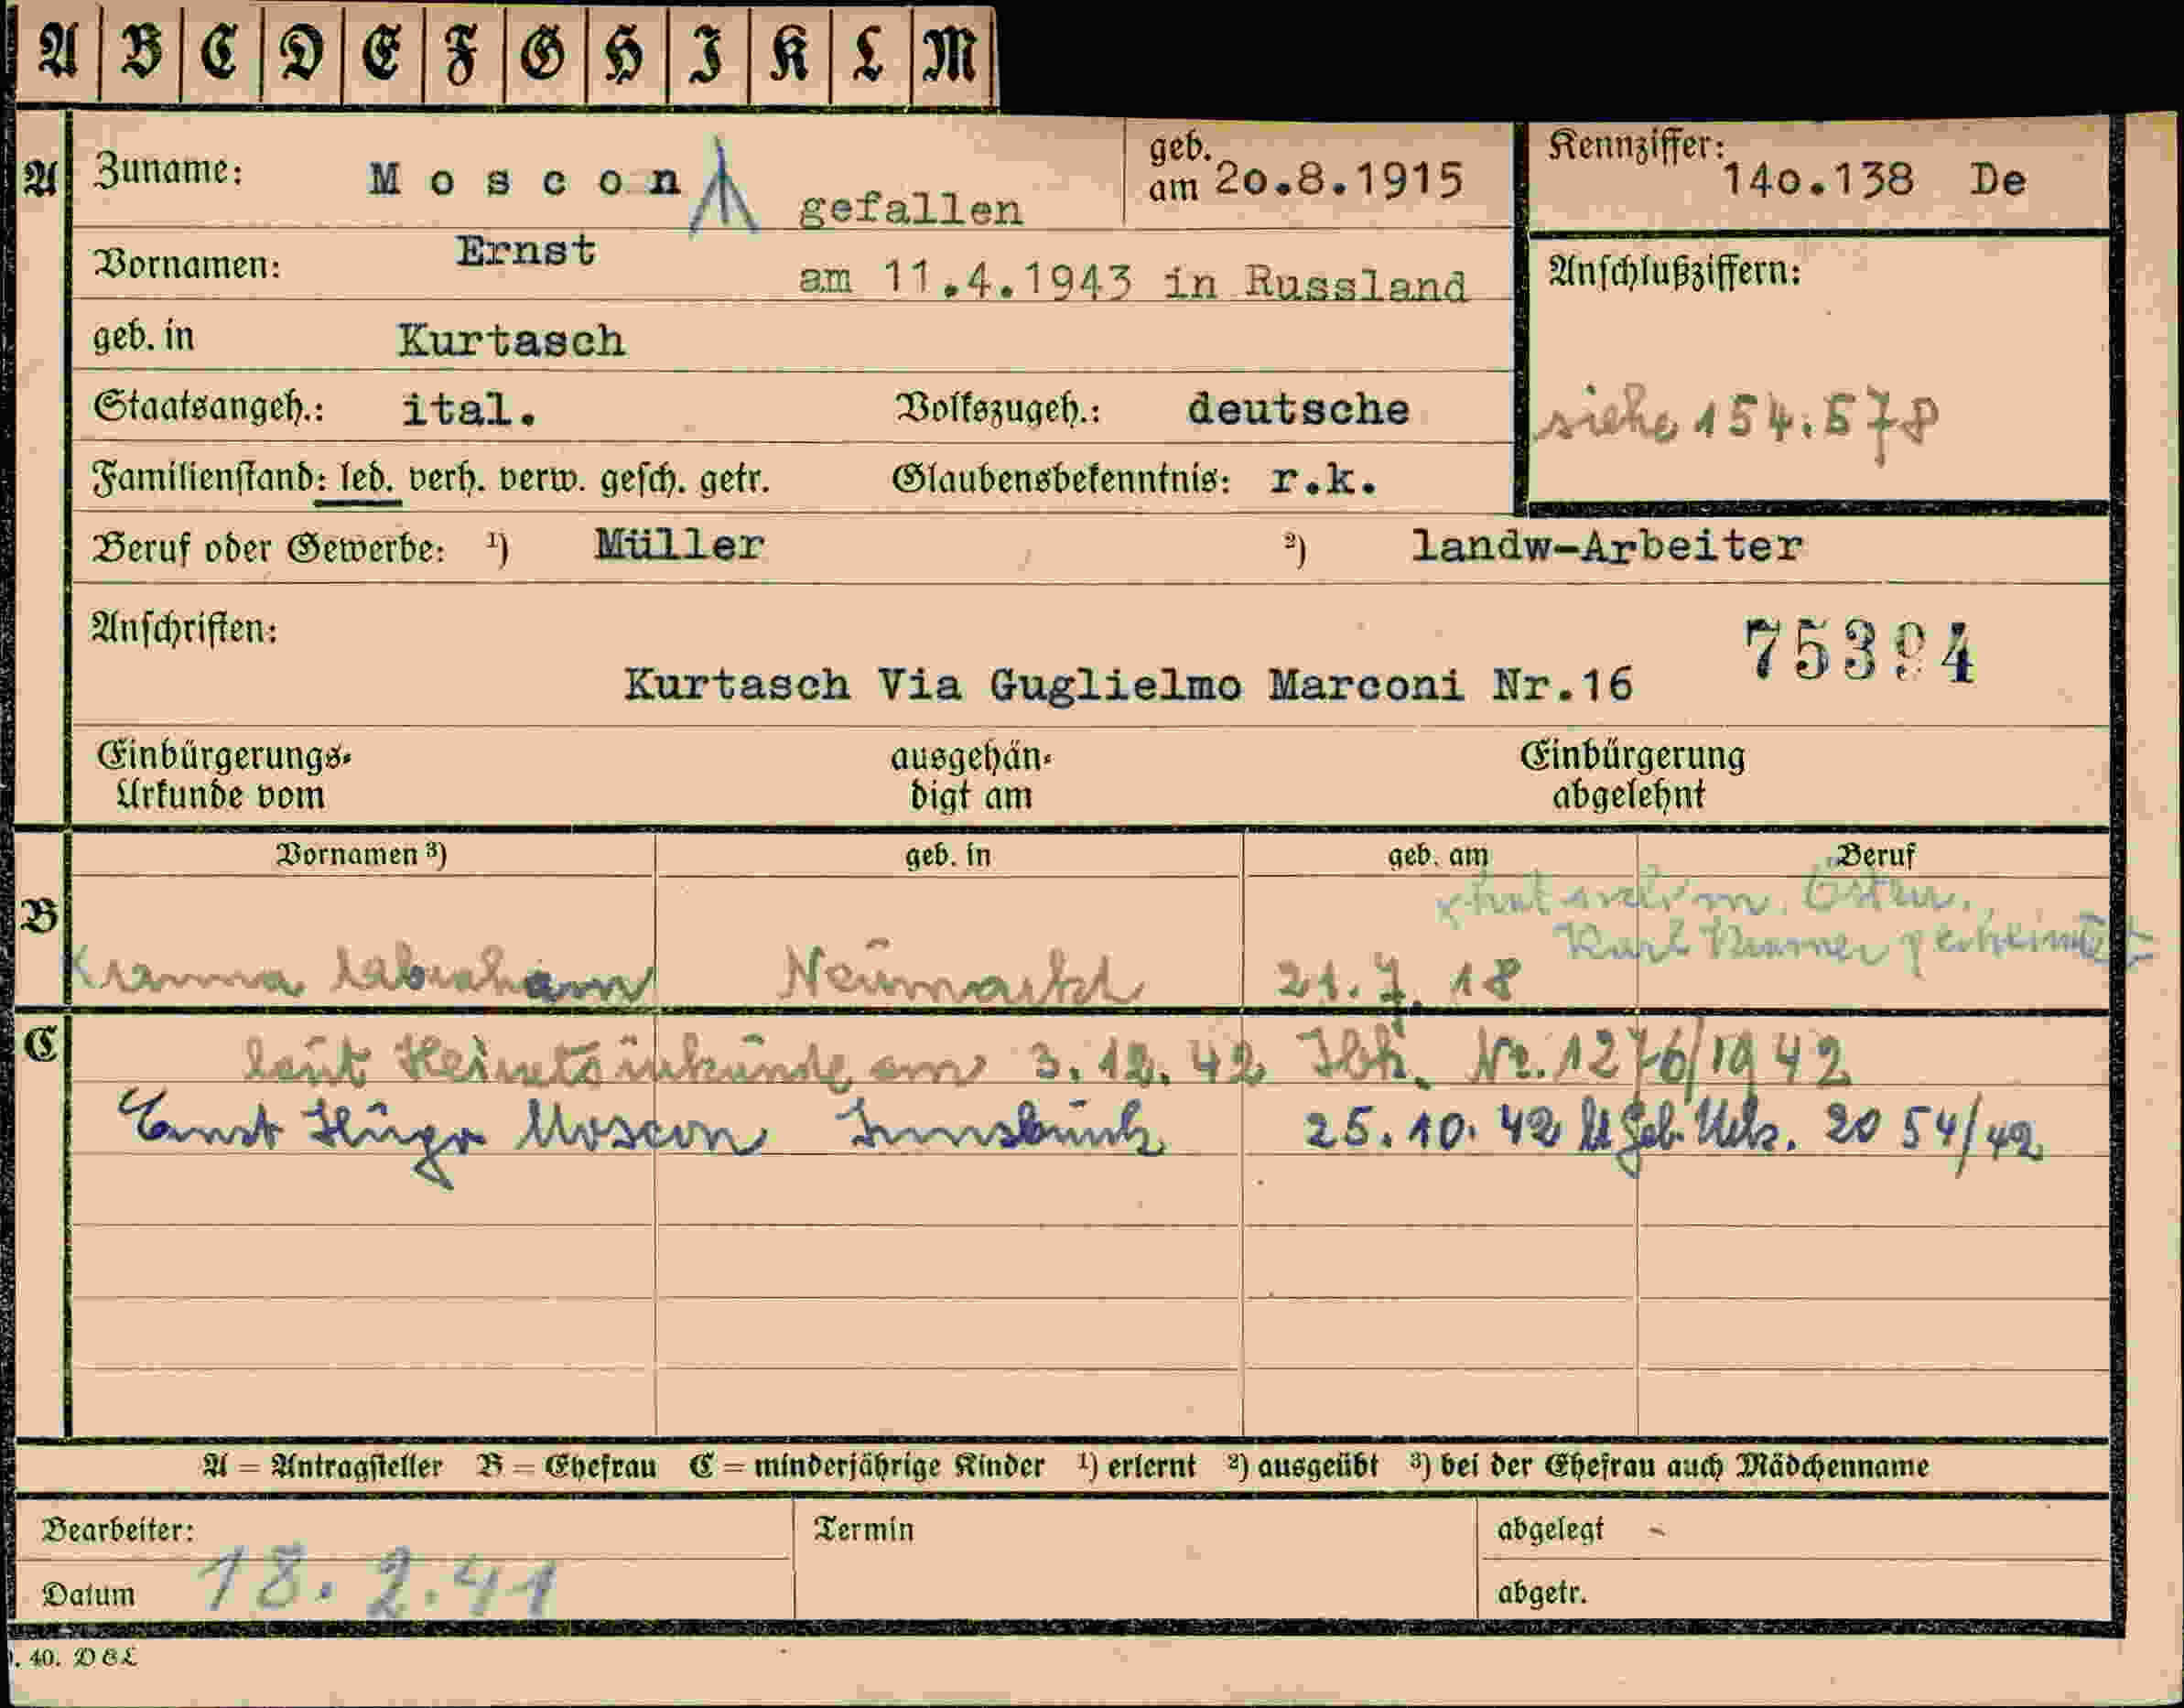 A B C D E F G H I K L M
A Zuname: Moscon gefallen geb. am 20.8.1915 Kennziffer: 140.138 De
Vornamen: Ernst am 11.4.1943 in Russland Anschlußziffern:
geb. in Kurtasch
Staatsangeh.: ital. Volkszugeh.: deutsche siehe 154.578
Familienstand: led. verh. verw. gesch. getr. Glaubensbekenntnis: r.k.
Beruf oder Gewerbe: 1) Müller 2) landw-Arbeiter
Anschriften:
Kurtasch Via Guglielmo Marconi Nr.16 75394
Einbürgerungs- ausgehän- Einbürgerung
Urkunde vom digt am abgelehnt
Vornamen 3) geb. in geb. am Beruf
B
Abraham Neumarkt 21.7.18 Karl
C laut Heiratsurkunde am 3.12.42 Ibk. Nr. 1276/1942
Ernst Hugo Moscon Innsbruck 25.10.42 lt Geb. Urk. 2054/42
A = Antragsteller B = Ehefrau C = minderjährige Kinder 1) erlernt 2) ausgeübt 3) bei der Ehefrau auch Mädchenname
Bearbeiter: Termin abgelegt -
Datum 18.2.41 abgetr.
. 40. DEL